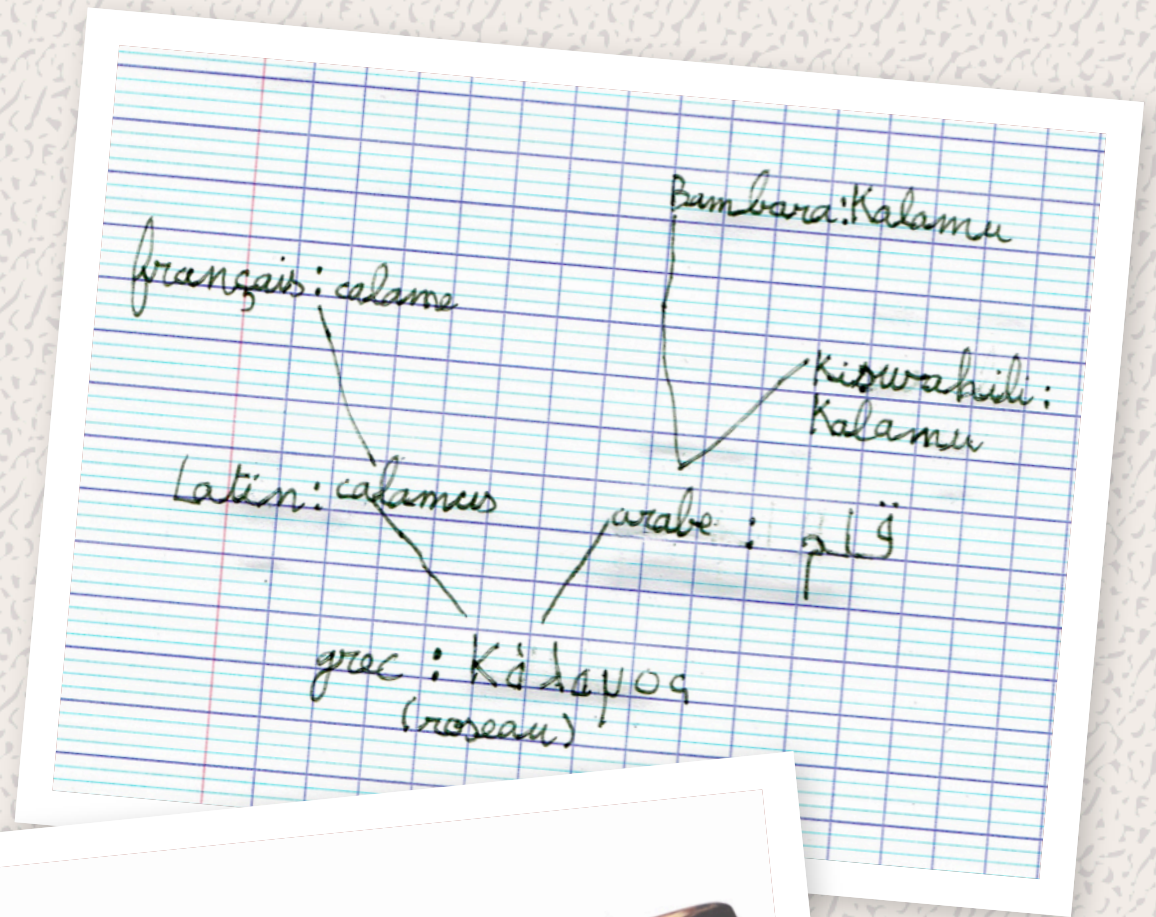 Bambara: Kalamu
français: calame
Kiswahili:
Kalamu
Latin: calamus
arabe : قلم
grec : Κάλαμος
(roseau)